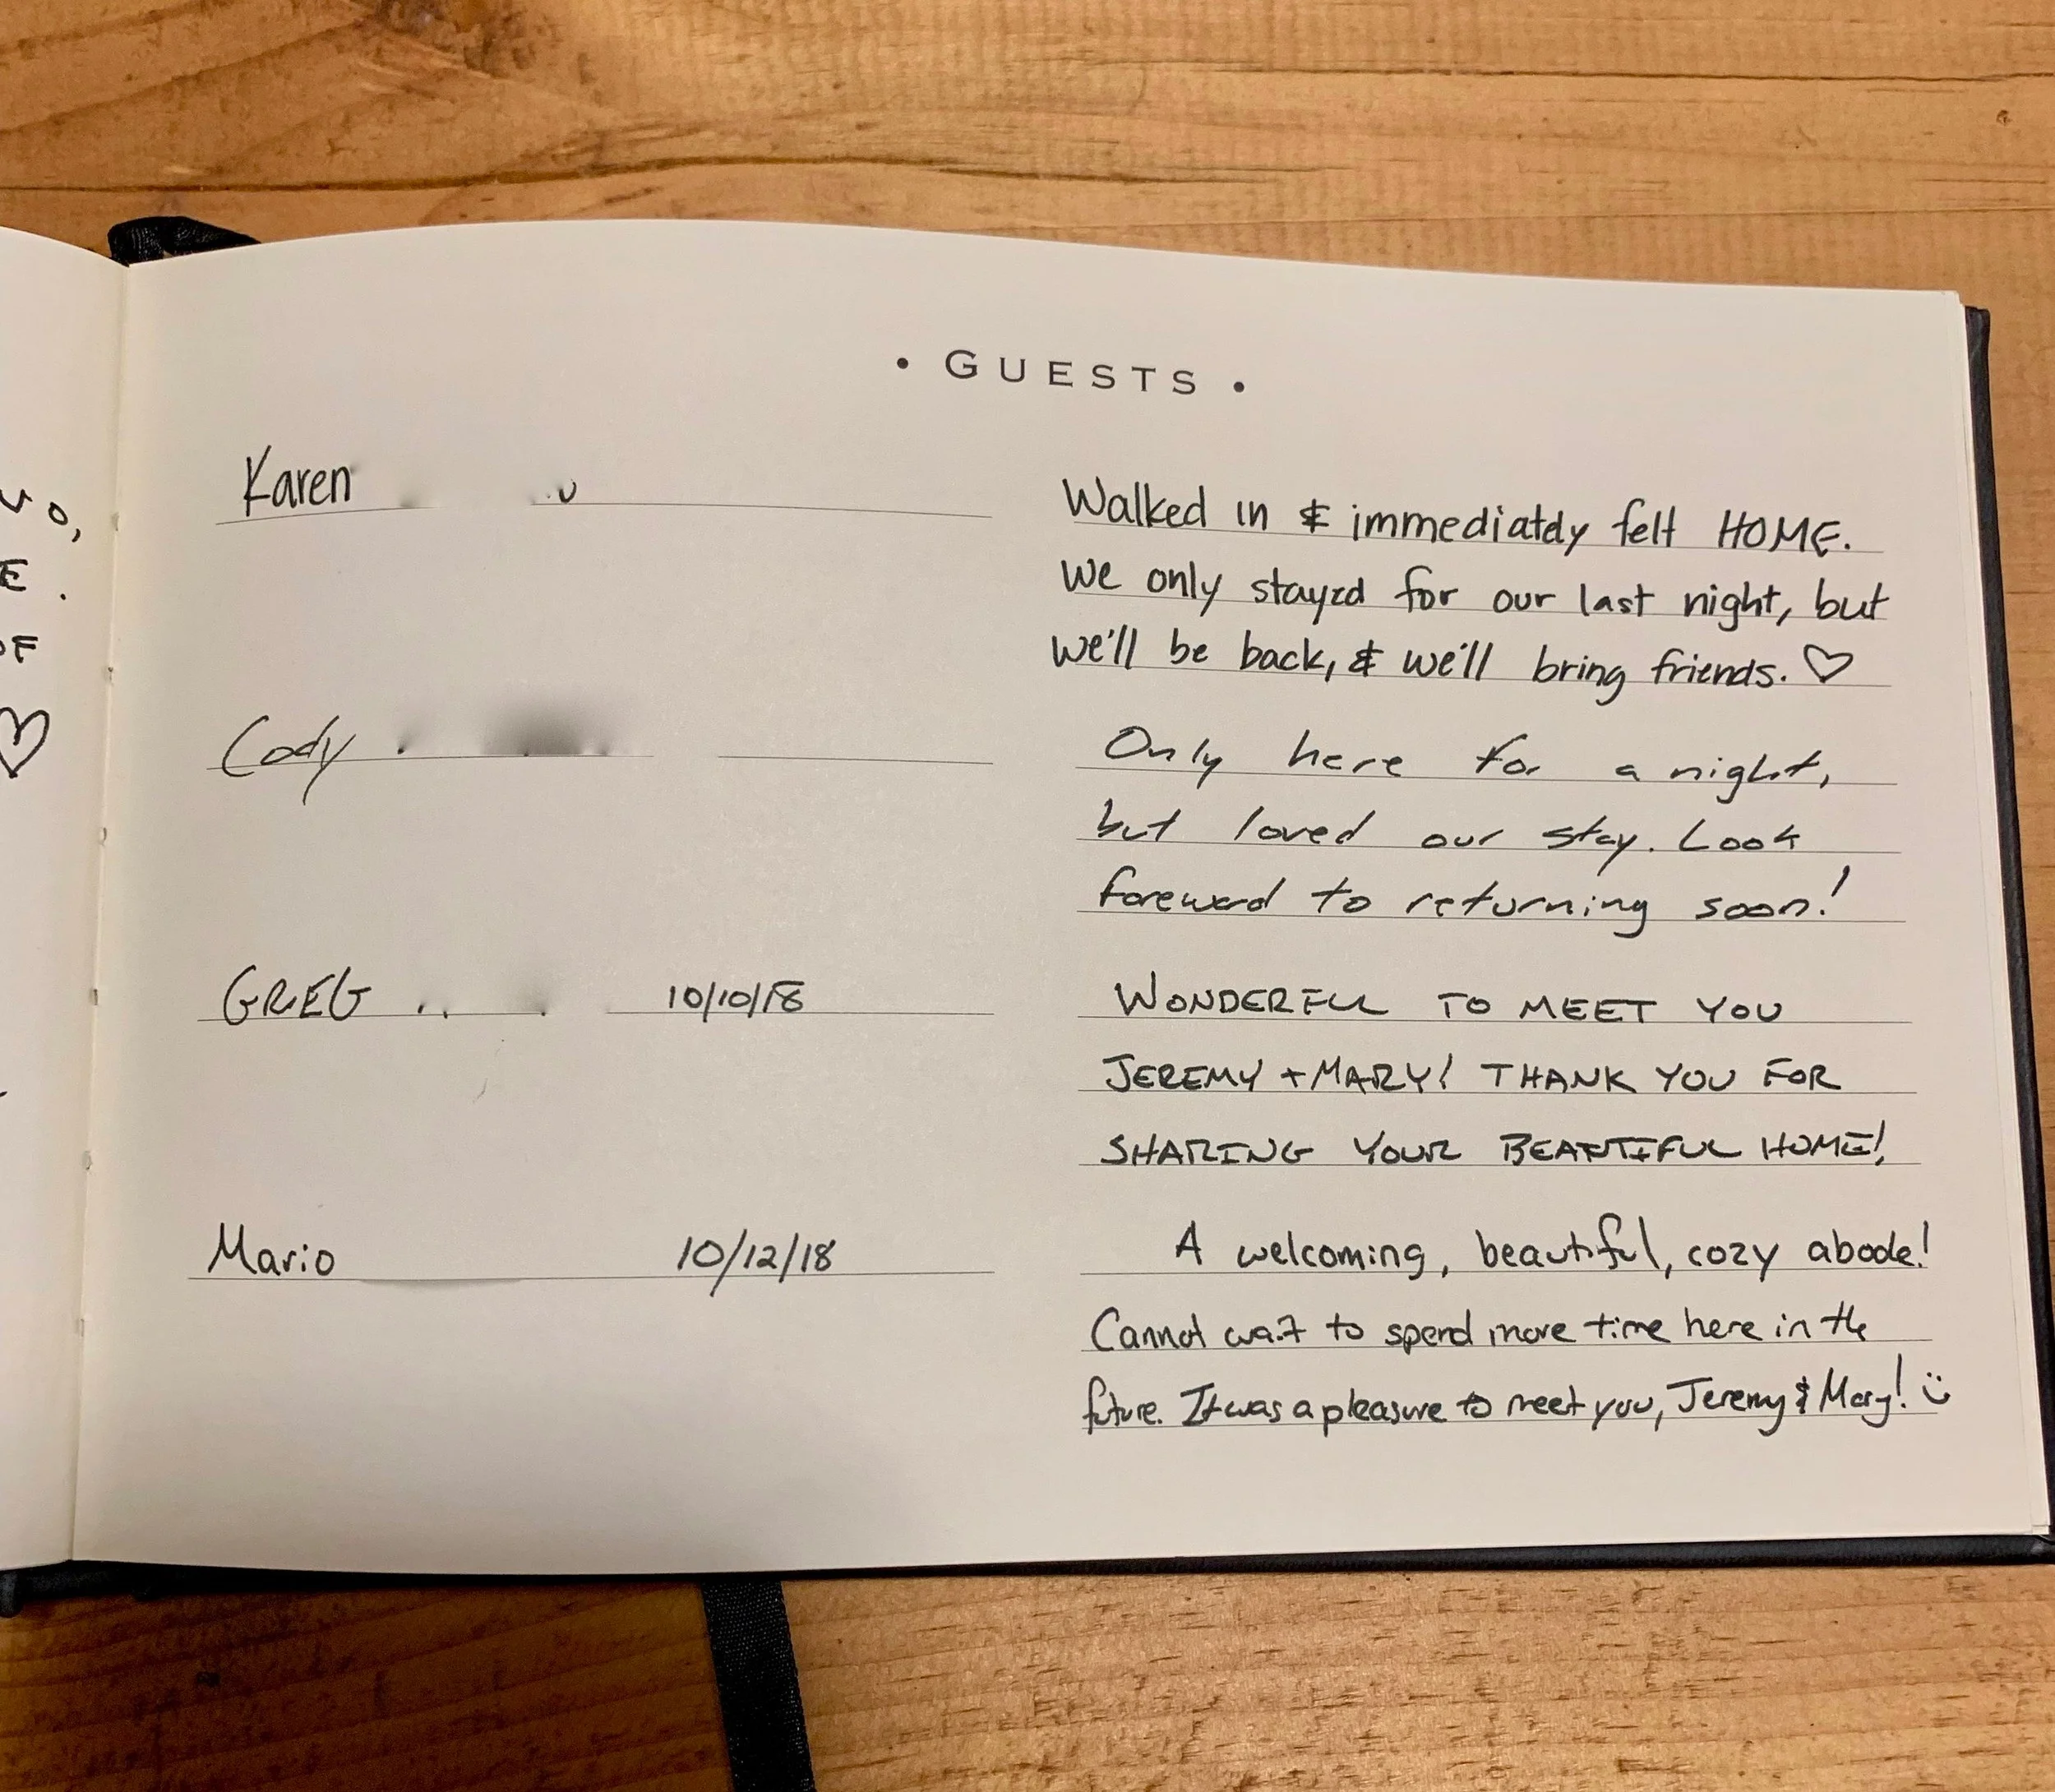 vo,
E.
OF
♡
• GUESTS •
Karen
Walked in & immediately felt HOME.
We only stayed for our last night, but
we'll be back, & we'll bring friends. ♡
Cody
Only here for a night,
but loved our stay. Look
foreward to returning soon!
GREG 10/10/18
WONDERFUL TO MEET YOU
JEREMY + MARY! THANK YOU FOR
SHARING YOUR BEAUTIFUL HOME!
Mario 10/12/18
A welcoming, beautiful, cozy abode!
Cannot wait to spend more time here in the
future. It was a pleasure to meet you, Jeremy & Mary! :)